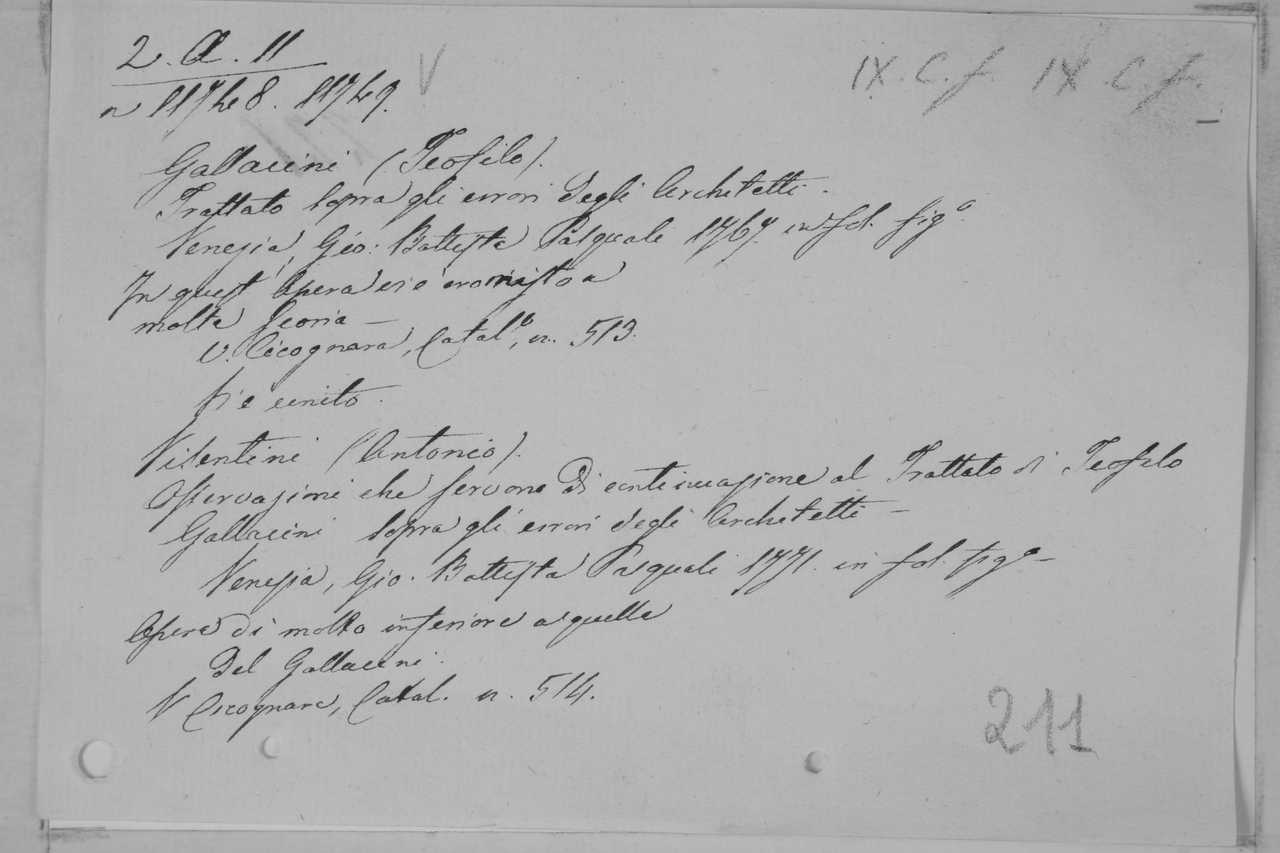 2. A. 11 V IX. C. f. IX. C. f.
n 11748. 11749.
Gallacini (Teofilo).
Trattato sopra gli errori degli Architetti.
Venezia, Gio: Battista Pasquali 1767. in fol. fig.ª
In quest' Opera evvi
molta teoria —
V. Cicognara, Catal.º, n. 513.
Vi è unito.
Visentini (Antonio).
Osservazioni che servono di continuazione al Trattato di Teofilo
Gallacini sopra gli errori degli Architetti —
Venezia, Gio. Battista Pasquali 1771. in fol. fig.ª —
Opera di molto inferiore a quella
del Gallacini.
V Cicognara, Catal. n. 514.
211